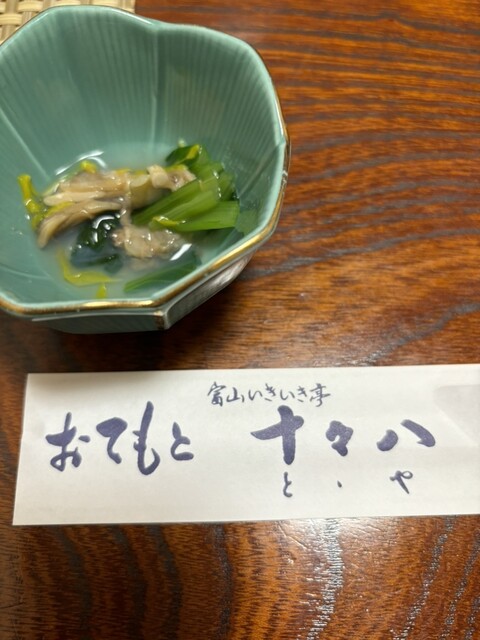 富山いきいき亭
おてもと 十々八
と、や